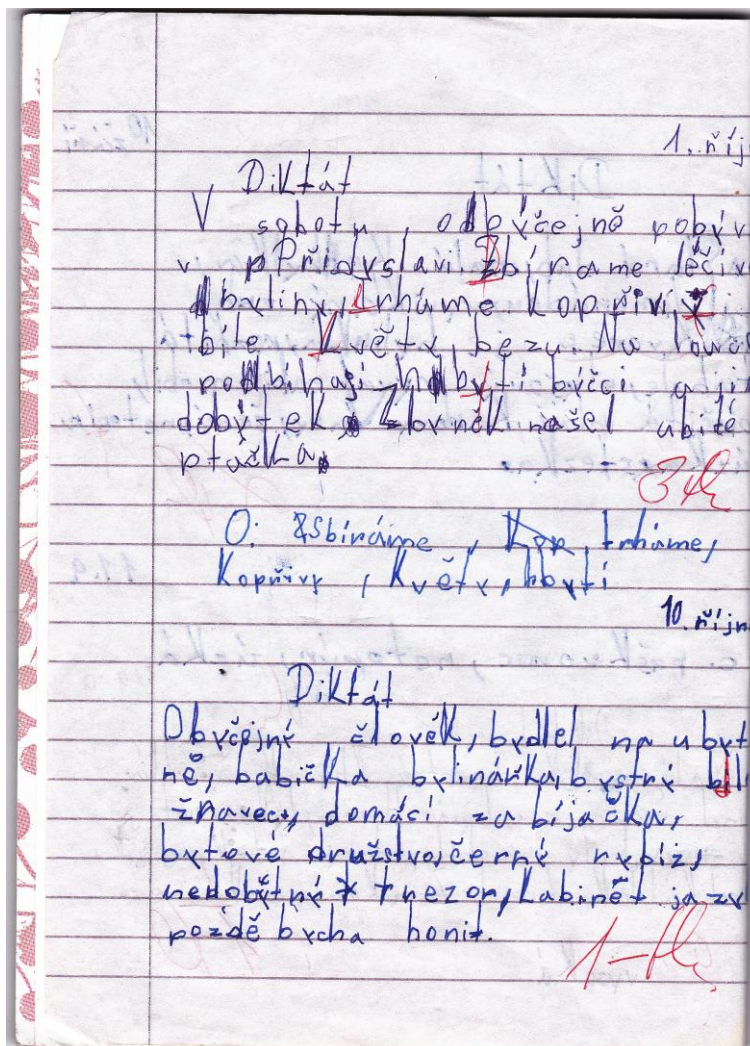 1. říj
Diktát
V sobotu, obyčejně pobýv
v Přibyslavi. Zbíráme léčiv
byliny, trháme kopřivi,
bíle květy bezu. Na louč
pobíhají hbytí býčci a ji
dobytek. Zbyněk našel ubité
ptáčka.
O: Sbíráme, trháme,
Kopřivy, květy, hbytí
10. říjn
Diktát
Obyčejný člověk, bydlel na ubyt
ně, babička bylinářka, bystrý bě
žnavec, domácí zabíjačka,
bytové družstvo, černý rybíz,
nedobytný trezor, kabinet jazy
pozdě bycha honit.